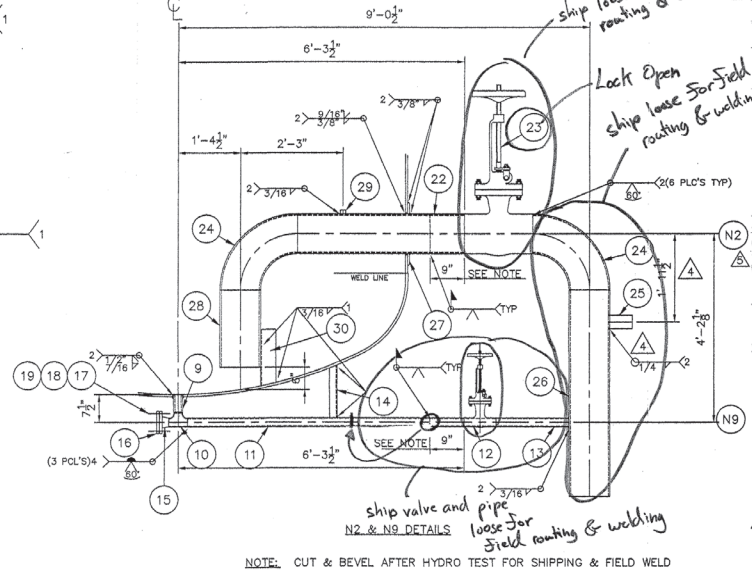 1
℄
9'-0½"
ship loose
routing &
6'-3½"
Lock Open
ship loose for field
routing & welding
2 3/8"
2 9/16" 3/8"
23
1'-4½"
2'-3"
2 3/16
29
22
2(6 PLC'S TYP)
60°
24
N2
5
24
1
28
WELD LINE
9"
SEE NOTE
4
25
4'-2⅛"
3/16 1
30
27
TYP
4
1/4 2
2 1/2" 1/16
19 18 17
9
TYP
26
7½"
14
16
SEE NOTE
9"
N9
(3 PCL'S)4
60°
10
11
6'-3½"
12
13
15
2 3/16
ship valve and pipe
loose for
field routing & welding
N2 & N9 DETAILS
NOTE: CUT & BEVEL AFTER HYDRO TEST FOR SHIPPING & FIELD WELD